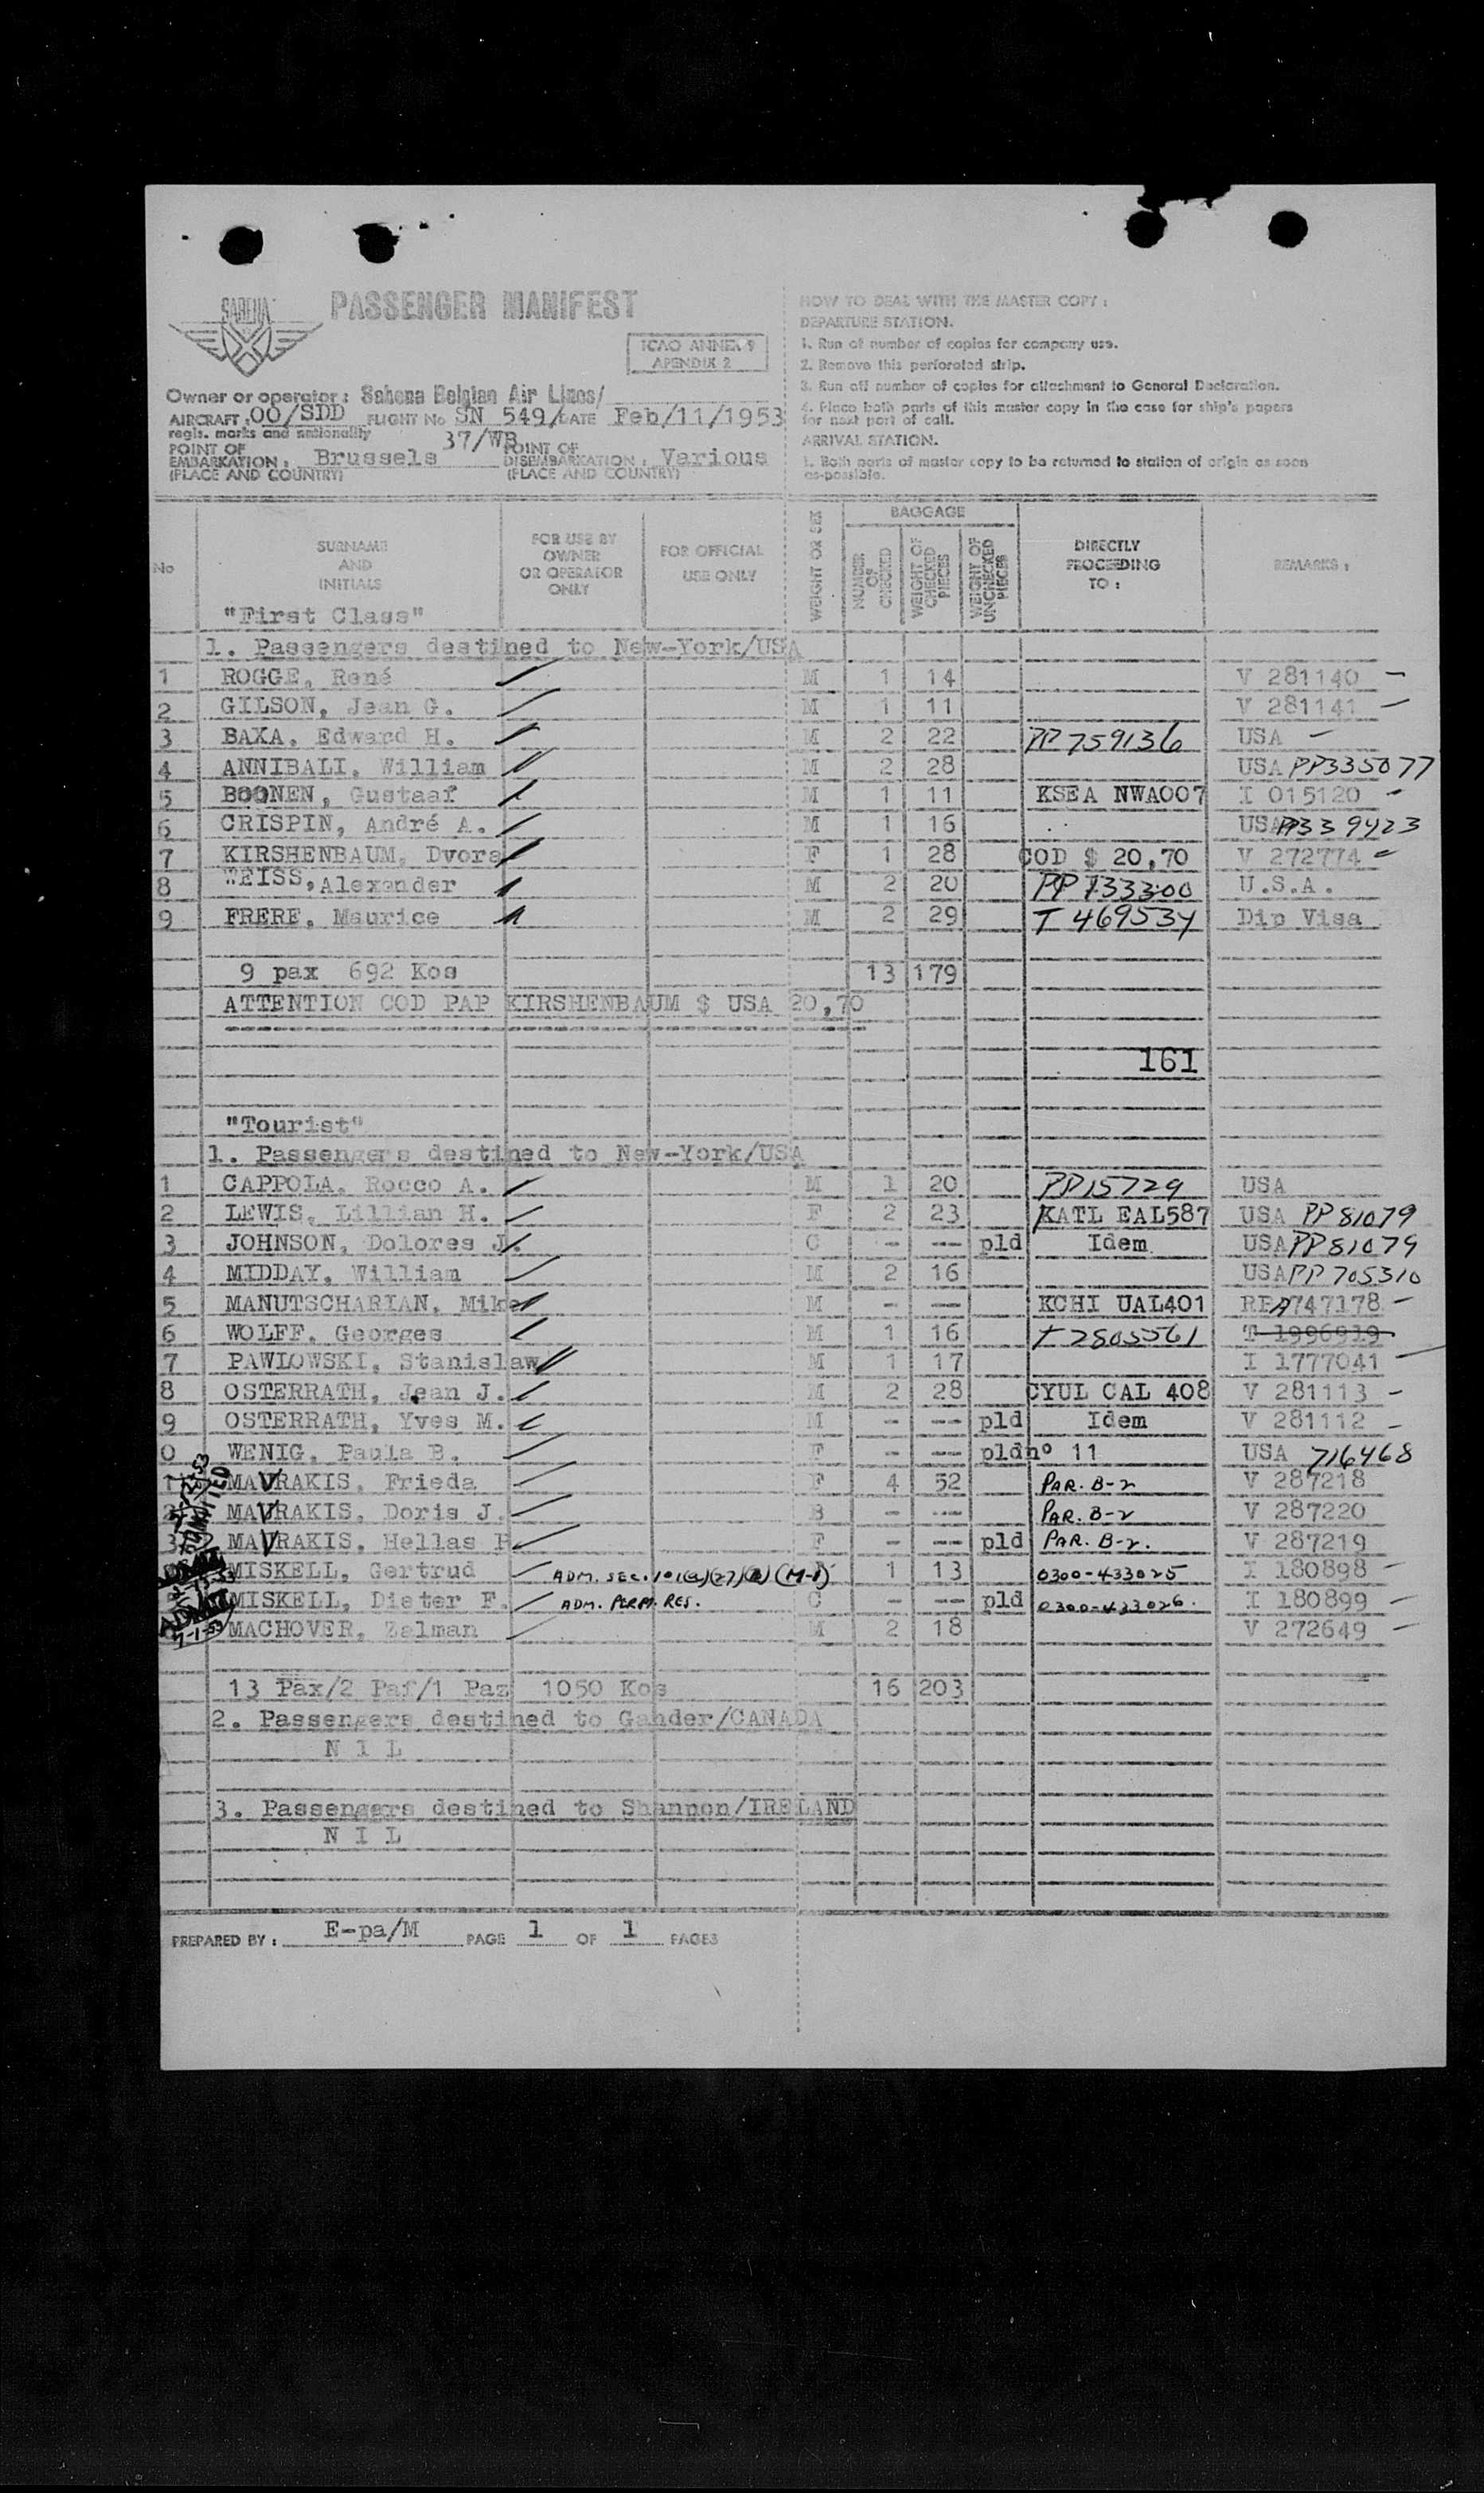 SABENA
PASSENGER MANIFEST
ICAO ANNEX 9
APENDIX 2
Owner or operator : Sabena Belgian Air Lines/
AIRCRAFT : OO/SDD FLIGHT No SN 549/ DATE Feb/11/1953
regis. marks and nationality 37/WB
POINT OF EMBARKATION : Brussels POINT OF DISEMBARKATION : Various
(PLACE AND COUNTRY) (PLACE AND COUNTRY)
HOW TO DEAL WITH THE MASTER COPY :
DEPARTURE STATION.
1. Run of number of copies for company use.
2. Remove this perforated strip.
3. Run off number of copies for attachment to General Declaration.
4. Place both parts of this master copy in the case for ship's papers
for next port of call.
ARRIVAL STATION.
1. Both parts of master copy to be returned to station of origin as soon
as-possible.
No SURNAME AND INITIALS FOR USE BY OWNER OR OPERATOR ONLY FOR OFFICIAL USE ONLY WEIGHT OR SEX BAGGAGE NUMBER OF CHECKED WEIGHT OF CHECKED PIECES WEIGHT OF UNCHECKED PIECES DIRECTLY PROCEEDING TO : REMARKS :
"First Class"
1. Passengers destined to New-York/USA
1 ROGGE, René M 1 14 V 281140 -
2 GILSON, Jean G. M 1 11 V 281141 -
3 BAXA, Edward H. M 2 22 PP 759136 USA -
4 ANNIBALI, William M 2 28 USA PP335077
5 BOONEN, Gustaaf M 1 11 KSEA NWA007 I 015120 -
6 CRISPIN, André A. M 1 16 USA PP339423
7 KIRSHENBAUM, Dvora F 1 28 COD $ 20,70 V 272774 -
8 WEISS, Alexander M 2 20 PP 133300 U.S.A.
9 FRERE, Maurice M 2 29 T 469534 Dip Visa
9 pax 692 Kos 13 179
ATTENTION COD PAP KIRSHENBAUM $ USA 20,70
161
"Tourist"
1. Passengers destined to New-York/USA
1 CAPPOLA, Rocco A. M 1 20 PP15729 USA
2 LEWIS, Lillian H. F 2 23 KATL EAL587 USA PP 81079
3 JOHNSON, Dolores J. C - -- pld Idem USA PP 81079
4 MIDDAY, William M 2 16 USA PP 705310
5 MANUTSCHARIAN, Mike M - -- KCHI UAL401 A747178 -
6 WOLFF, Georges M 1 16 T 2805561 T 1996919
7 PAWLOWSKI, Stanislaw M 1 17 I 1777041 -
8 OSTERRATH, Jean J. M 2 28 CYUL CAL 408 V 281113 -
9 OSTERRATH, Yves M. M - -- pld Idem V 281112 -
0 WENIG, Paula B. F - -- pld n° 11 USA 716468
1 MAVRAKIS, Frieda F 4 52 PAR. B-2 V 287218
2 MAVRAKIS, Doris J. B - -- PAR. B-2 V 287220
3 MAVRAKIS, Hellas P F - -- pld PAR. B-2. V 287219
MISKELL, Gertrud ADM. SEC. 101(a)(27)(A) (M-1) F 1 13 0300-433025 I 180898 -
MISKELL, Dieter F. ADM. PERM. RES. C - -- pld 0300-433026. I 180899 -
MACHOVER, Zelman M 2 18 V 272649 -
ADMITTED
13 Pax/2 Paf/1 Paz 1050 Kos 16 203
2. Passengers destined to Gander/CANADA
N I L
3. Passengers destined to Shannon/IRELAND
N I L
PREPARED BY : E-pa/M PAGE 1 OF 1 PAGES